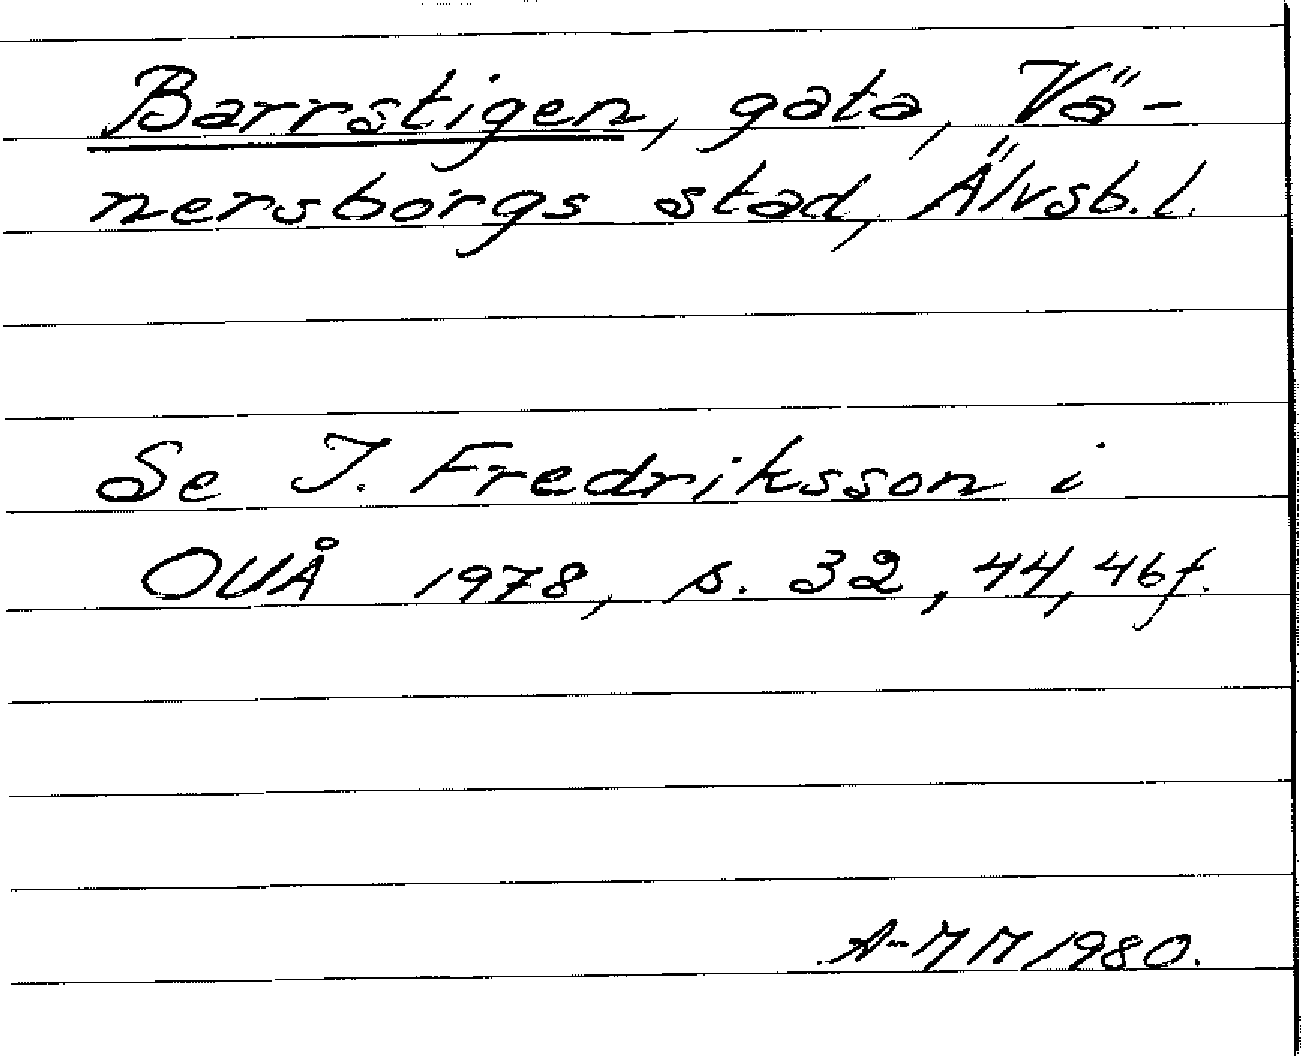 Barrstigen, gata, Vä-
nersborgs stad, Älvsb. l.
Se I. Fredriksson i
OUÅ 1978, s. 32, 44, 46 f.
A-MM 1980.